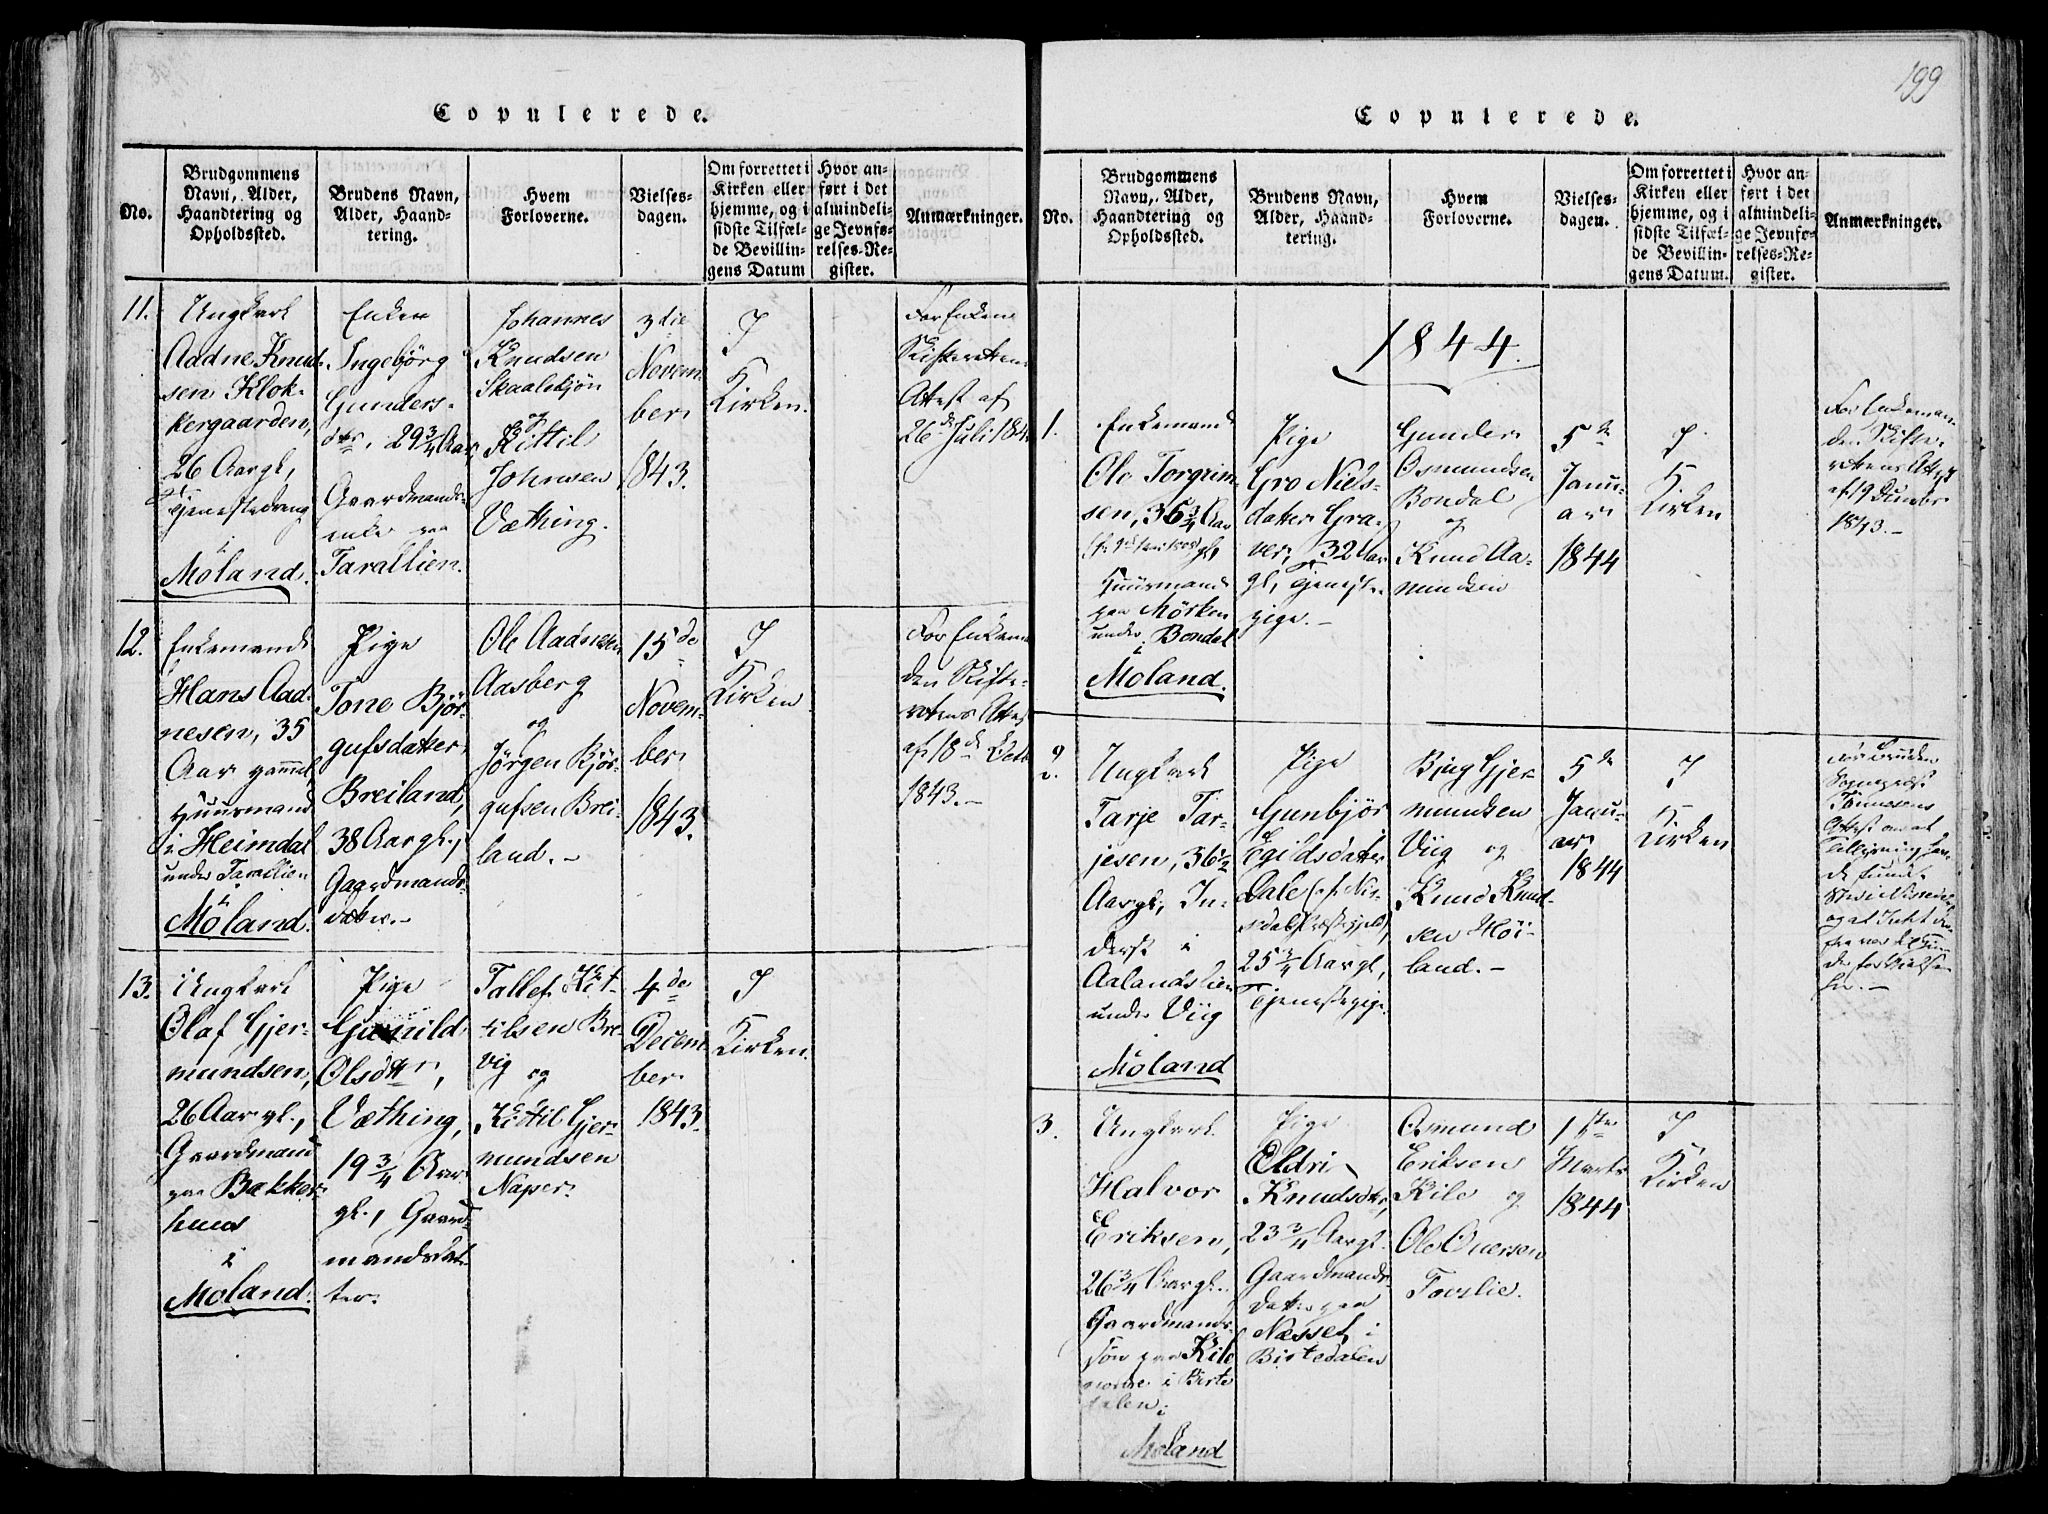 199
Copulerede.
No.
Brudgommens
Navn, Alder,
Haandtering og
Opholdssted.
Brudens Navn,
Alder, Haand-
tering.
Hvem
Forloverne.
Vielses-
dagen.
Om forrettet i
Kirken eller
hjemme, og i
sidste Tilfæl-
de Bevillin-
gens Datum
Hvor an-
ført i det
almindeli-
ge Jevnfø-
relses-Re-
gister.
Anmærkninger.
11.
Ungkarl
Aadne Knud-
sen Klok-
kergaarden,
26 Aar gl.,
Tjenestedreng
i
Moland.
Enken
Ingebjørg
Gunders-
dtr. 29 3/4 Aar,
Gaardmands-
enke paa
Tarallien.
Johannes
Knudsen
Skaaletjøn
og
Kittil
Johnsen
Væthing.
3die
Novem-
ber
1843.
I
Kirken.
For Enken
Skifterettens
Attest af
26de Juli 184
12.
Enkemand
Hans Aad-
nesen, 35
Aar gammel
Huusmand
i Heimdal
under Tarallien
i
Moland.
Pige
Tone Bjør-
gufsdatter
Breiland,
38 Aar gl.,
Gaardmands-
datter.-
Ole Aadnesen
Aasberg
og
Jørgen Bjør-
gufsen Brei-
land.-
15de
Novem-
ber
1843.
I
Kirken
For Enkeman
den Skifte-
rettens Attest
af 18de Octb
1843.-
13.
Ungkarl
Olaf Gjer-
mundsen,
26 Aar gl.,
Gaardmand
paa Bakker
huus
i
Moland.
Pige
Gunild
Olsdttr,
Væthing,
19 3/4 Aar
gl., Gaard-
mandsdat-
ter.
Tallef Kit-
tilsen Bre-
vig og
Kittil Gjer-
mundsen
Naper.
4de
Decem-
ber
1843.
I
Kirken.
Copulerede.
No.
Brudgommens
Navn, Alder,
Haandtering og
Opholdssted.
Brudens Navn,
Alder, Haand-
tering.
Hvem
Forloverne.
Vielses-
dagen.
Om forrettet i
Kirken eller
hjemme, og i
sidste Tilfæl-
de Bevillin-
gens Datum.
Hvor an-
ført i det
almindeli-
ge Jevnfø-
relses-Re-
gister.
Anmærkninger.
1844.
1.
Enkemand
Ole Torgrim-
sen, 36 3/4 Aar
gl.
Huusmand
paa Mörken
under Bondal
i
Moland.
Pige
Gro Niels-
datter Gra-
ver, 32 Aar
gl., Tjeneste-
pige.-
Gunder
Osmundsen
Bondal
og
Knud Aa-
mundsen
5te
Janu-
ar
1844
I
Kirken
For Enkeman
den Skifte-
rettens Attest
af 19 Decembr
1843.-
2.
Ungkarl
Tarje Tar-
jesen, 36 1/2
Aar gl., In-
derst i
Aalandslien
under Viig
i
Moland
Pige
Gunbjør
Egildsdatter
Dale (af Nis-
sedals Præstegjeld),
25 3/4 Aar gl,
Tjenestepige.
Bjug Gjer-
mundsen
Viig og
Knud Knud-
sen Høi-
land.-
5te
Janu-
ar
1844
I
Kirken
For Bruden
Sognepræst
Tønnesens
Attest om at
Tillysning
og at Intet
for Vielsen
3.
Ungkarl
Halvor
Eriksen,
26 3/4 Aar gl.
Gaardmands-
søn paa Kile
nordre i Birte
dalen i
Moland
Pige
Eldri
Knudsdtr,
23 3/4 Aar gl.
Gaardmands-
datter paa
Næsset i
Birtedalen
Osmund
Eriksen
Kile og
Ole Oversen
Foerlie.
1ste
Marts
1844
I
Kirken